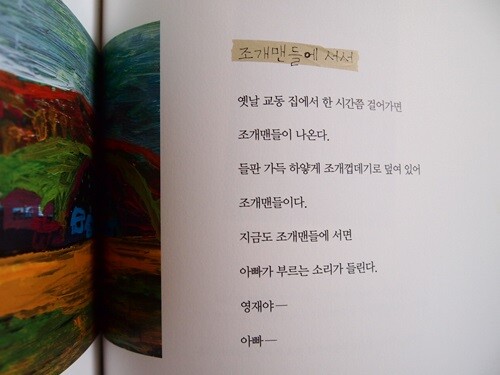 조개맨들에 서서
옛날 교동 집에서 한 시간쯤 걸어가면
조개맨들이 나온다.
들판 가득 하얗게 조개껍데기로 덮여 있어
조개맨들이다.
지금도 조개맨들에 서면
아빠가 부르는 소리가 들린다.
영재야—
아빠—